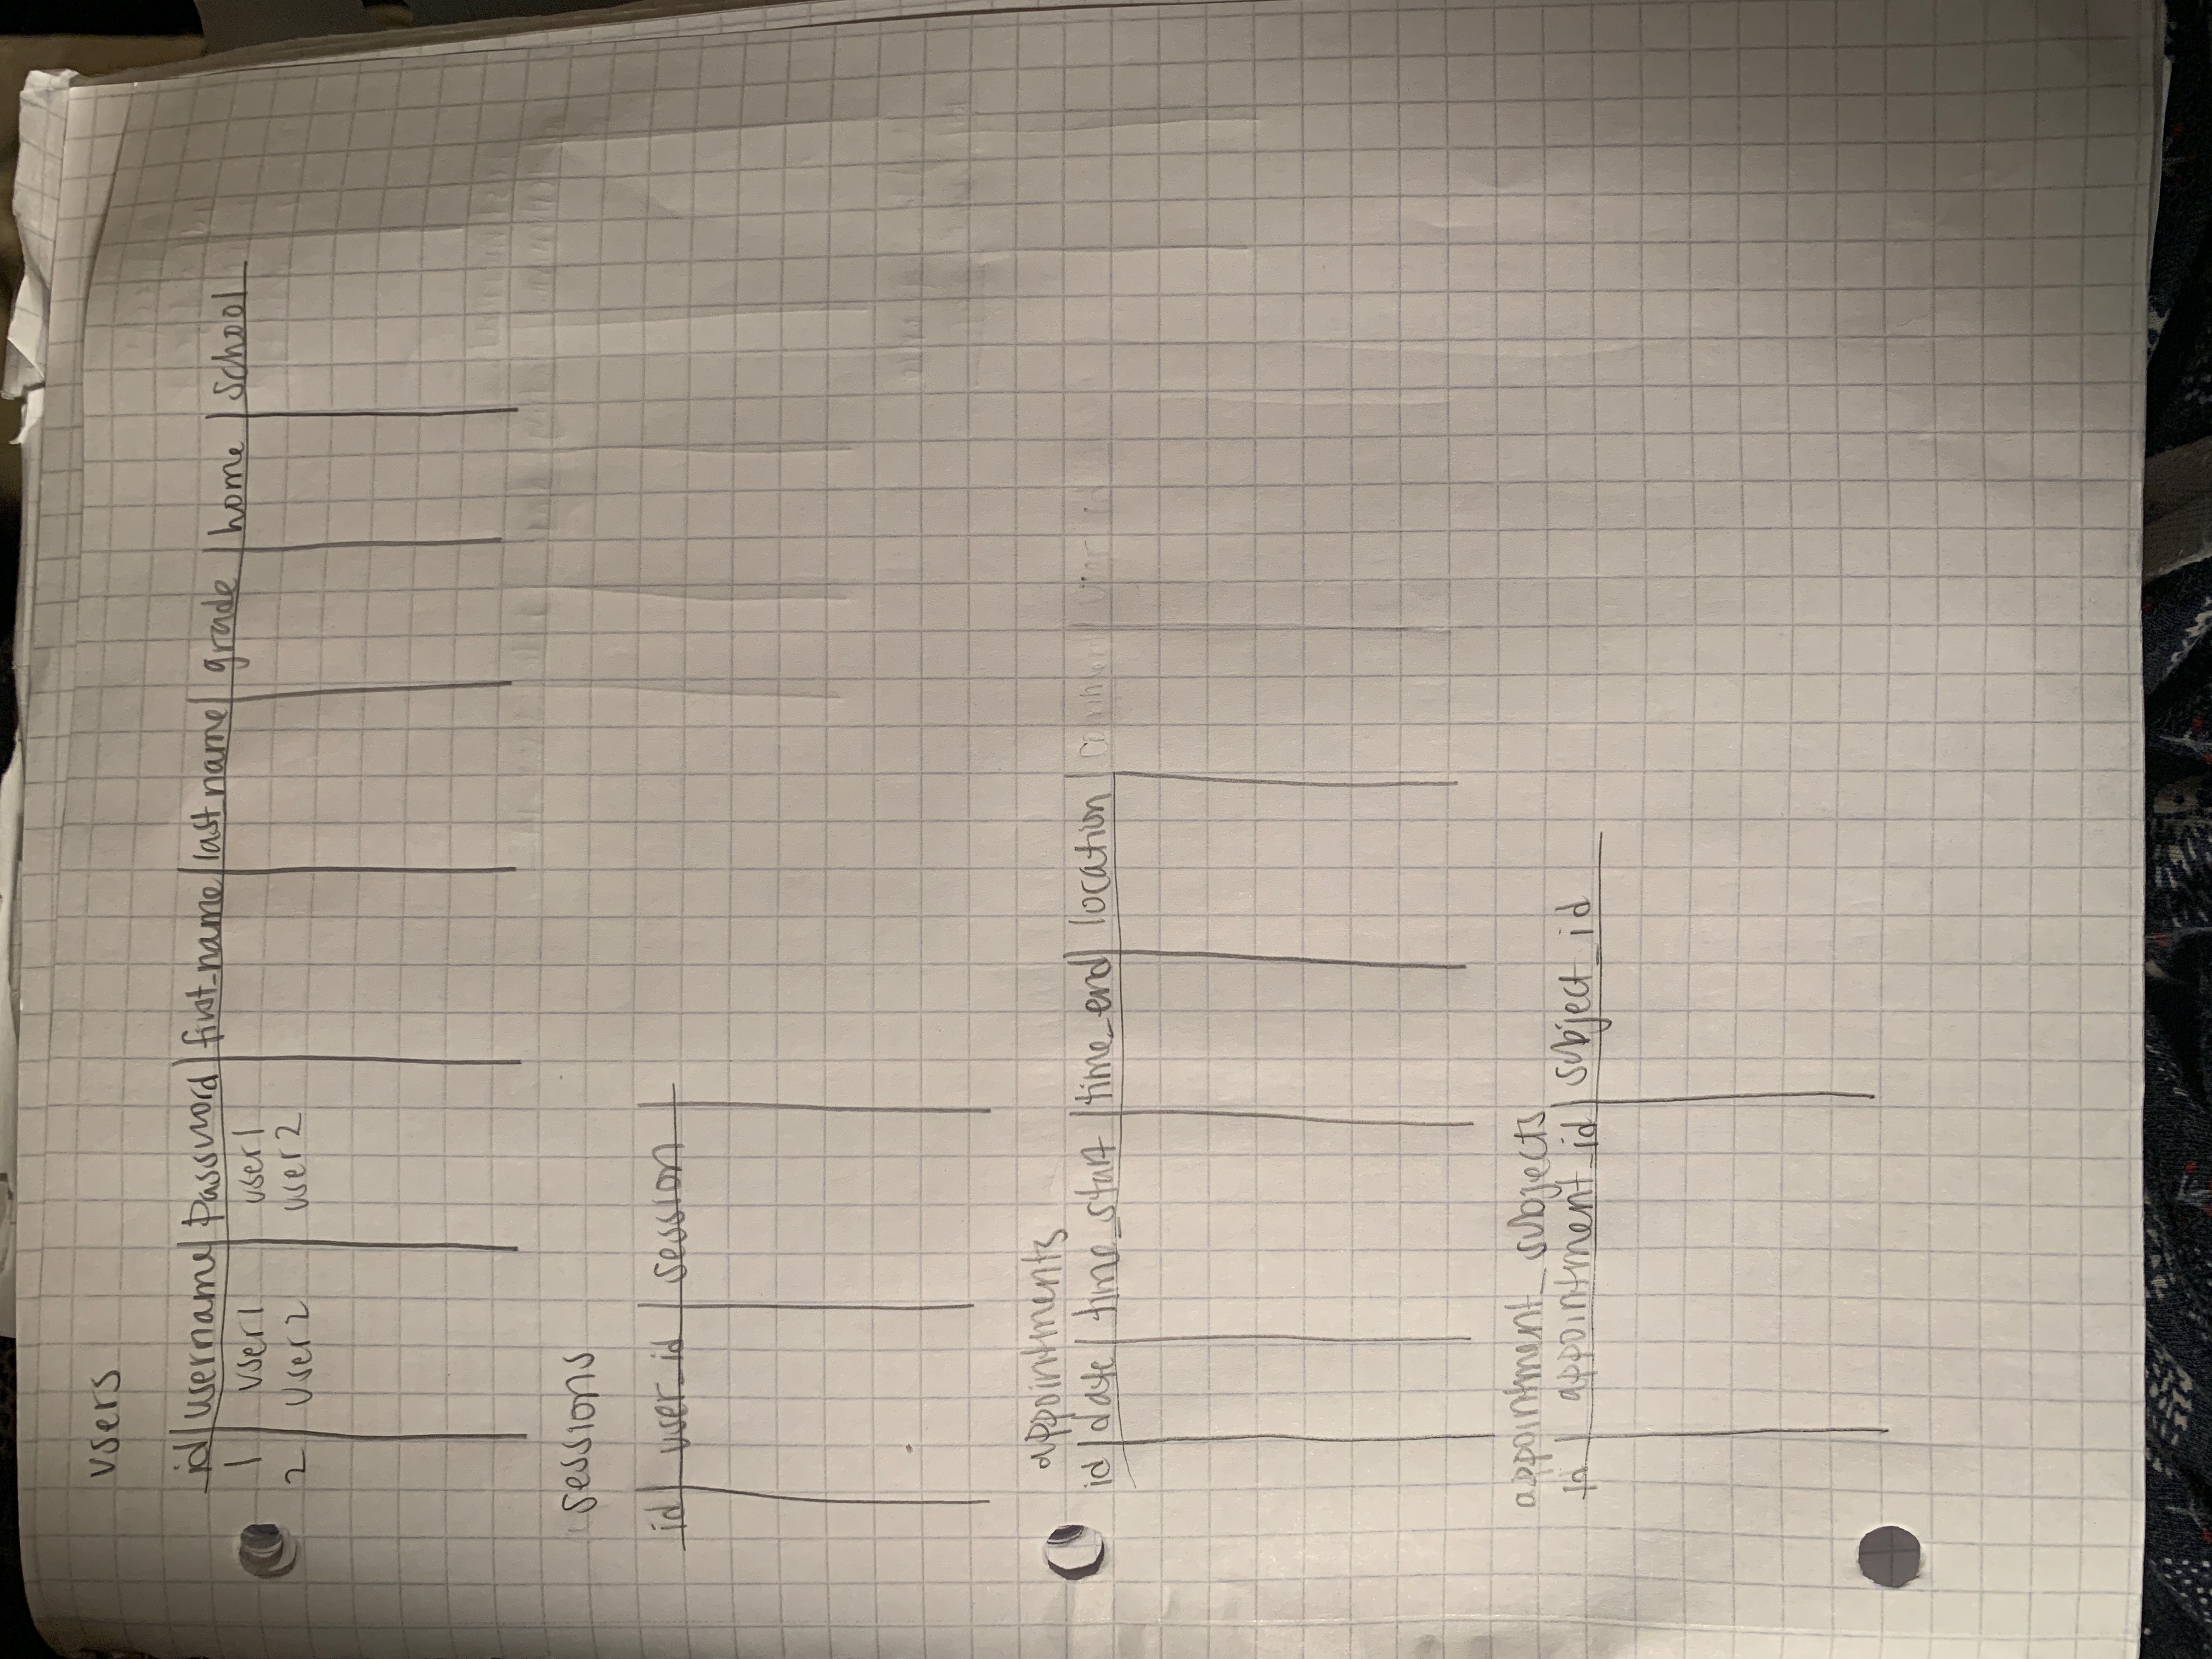 users
id username password first_name last name grade home school
1 user1 user1
2 user2 user2
sessions
id user_id session
appointments
id date time_start time_end location comment user id
appointment_subjects
id appointment_id subject_id